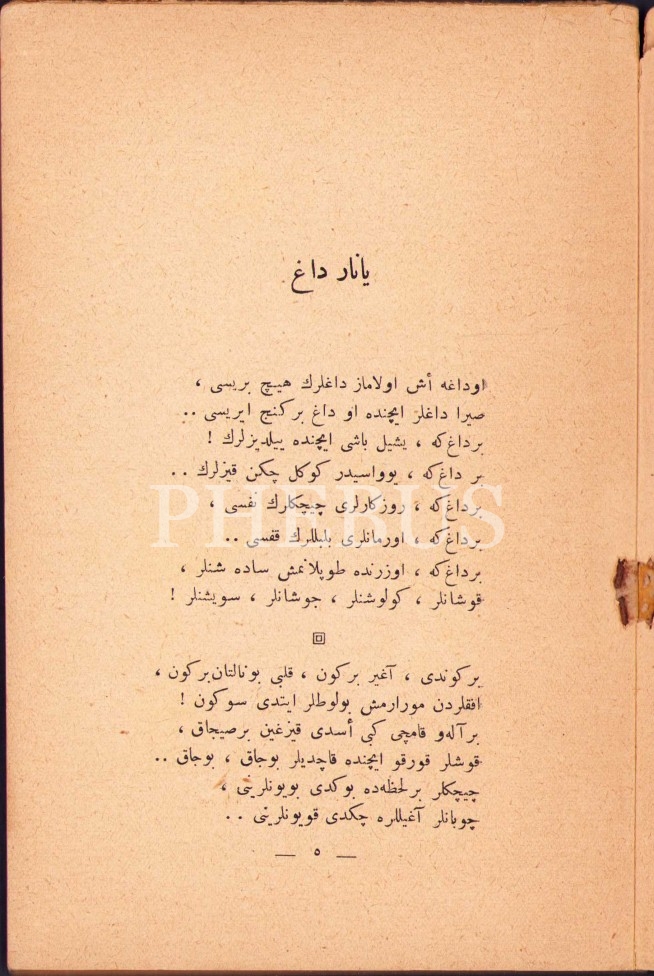 يانار داغ
اوداغه أش اولاماز داغلرك هيچ بريسى ،
صيرا داغلر ايچنده او داغ بركنج ايريسى ..
برداغ‌كه ، يشيل باشى ايچنده ييلديزلرك !
بر داغ‌كه ، يوواسيدر كوكل چكن قيزلرك ..
برداغ‌كه ، روزكارلرى چيچكلرك نفسى ،
برداغ‌كه ، اورمانلرى بلبللرك قفسى ..
برداغ‌كه ، اوزرنده طوپلانمش ساده شنلر ،
قوشانلر ، كولوشنلر ، جوشانلر ، سويشنلر !
بركوندى ، آغير بركون ، قلبى بونالتان‌بركون ،
افقلردن مورارمش بولوطلر ايتدى سوكون !
برآله‌و قامچى كبى أسدى قيزغين برصيجاق ،
قوشلر قورقو ايچنده قاچديلر بوجاق ، بوجاق ..
چيچكلر برلحظه‌ده بوكدى بويونلرينى ،
چوبانلر آغيللره چكدى قويونلرينى ..
— ٥ —
PHEBUS